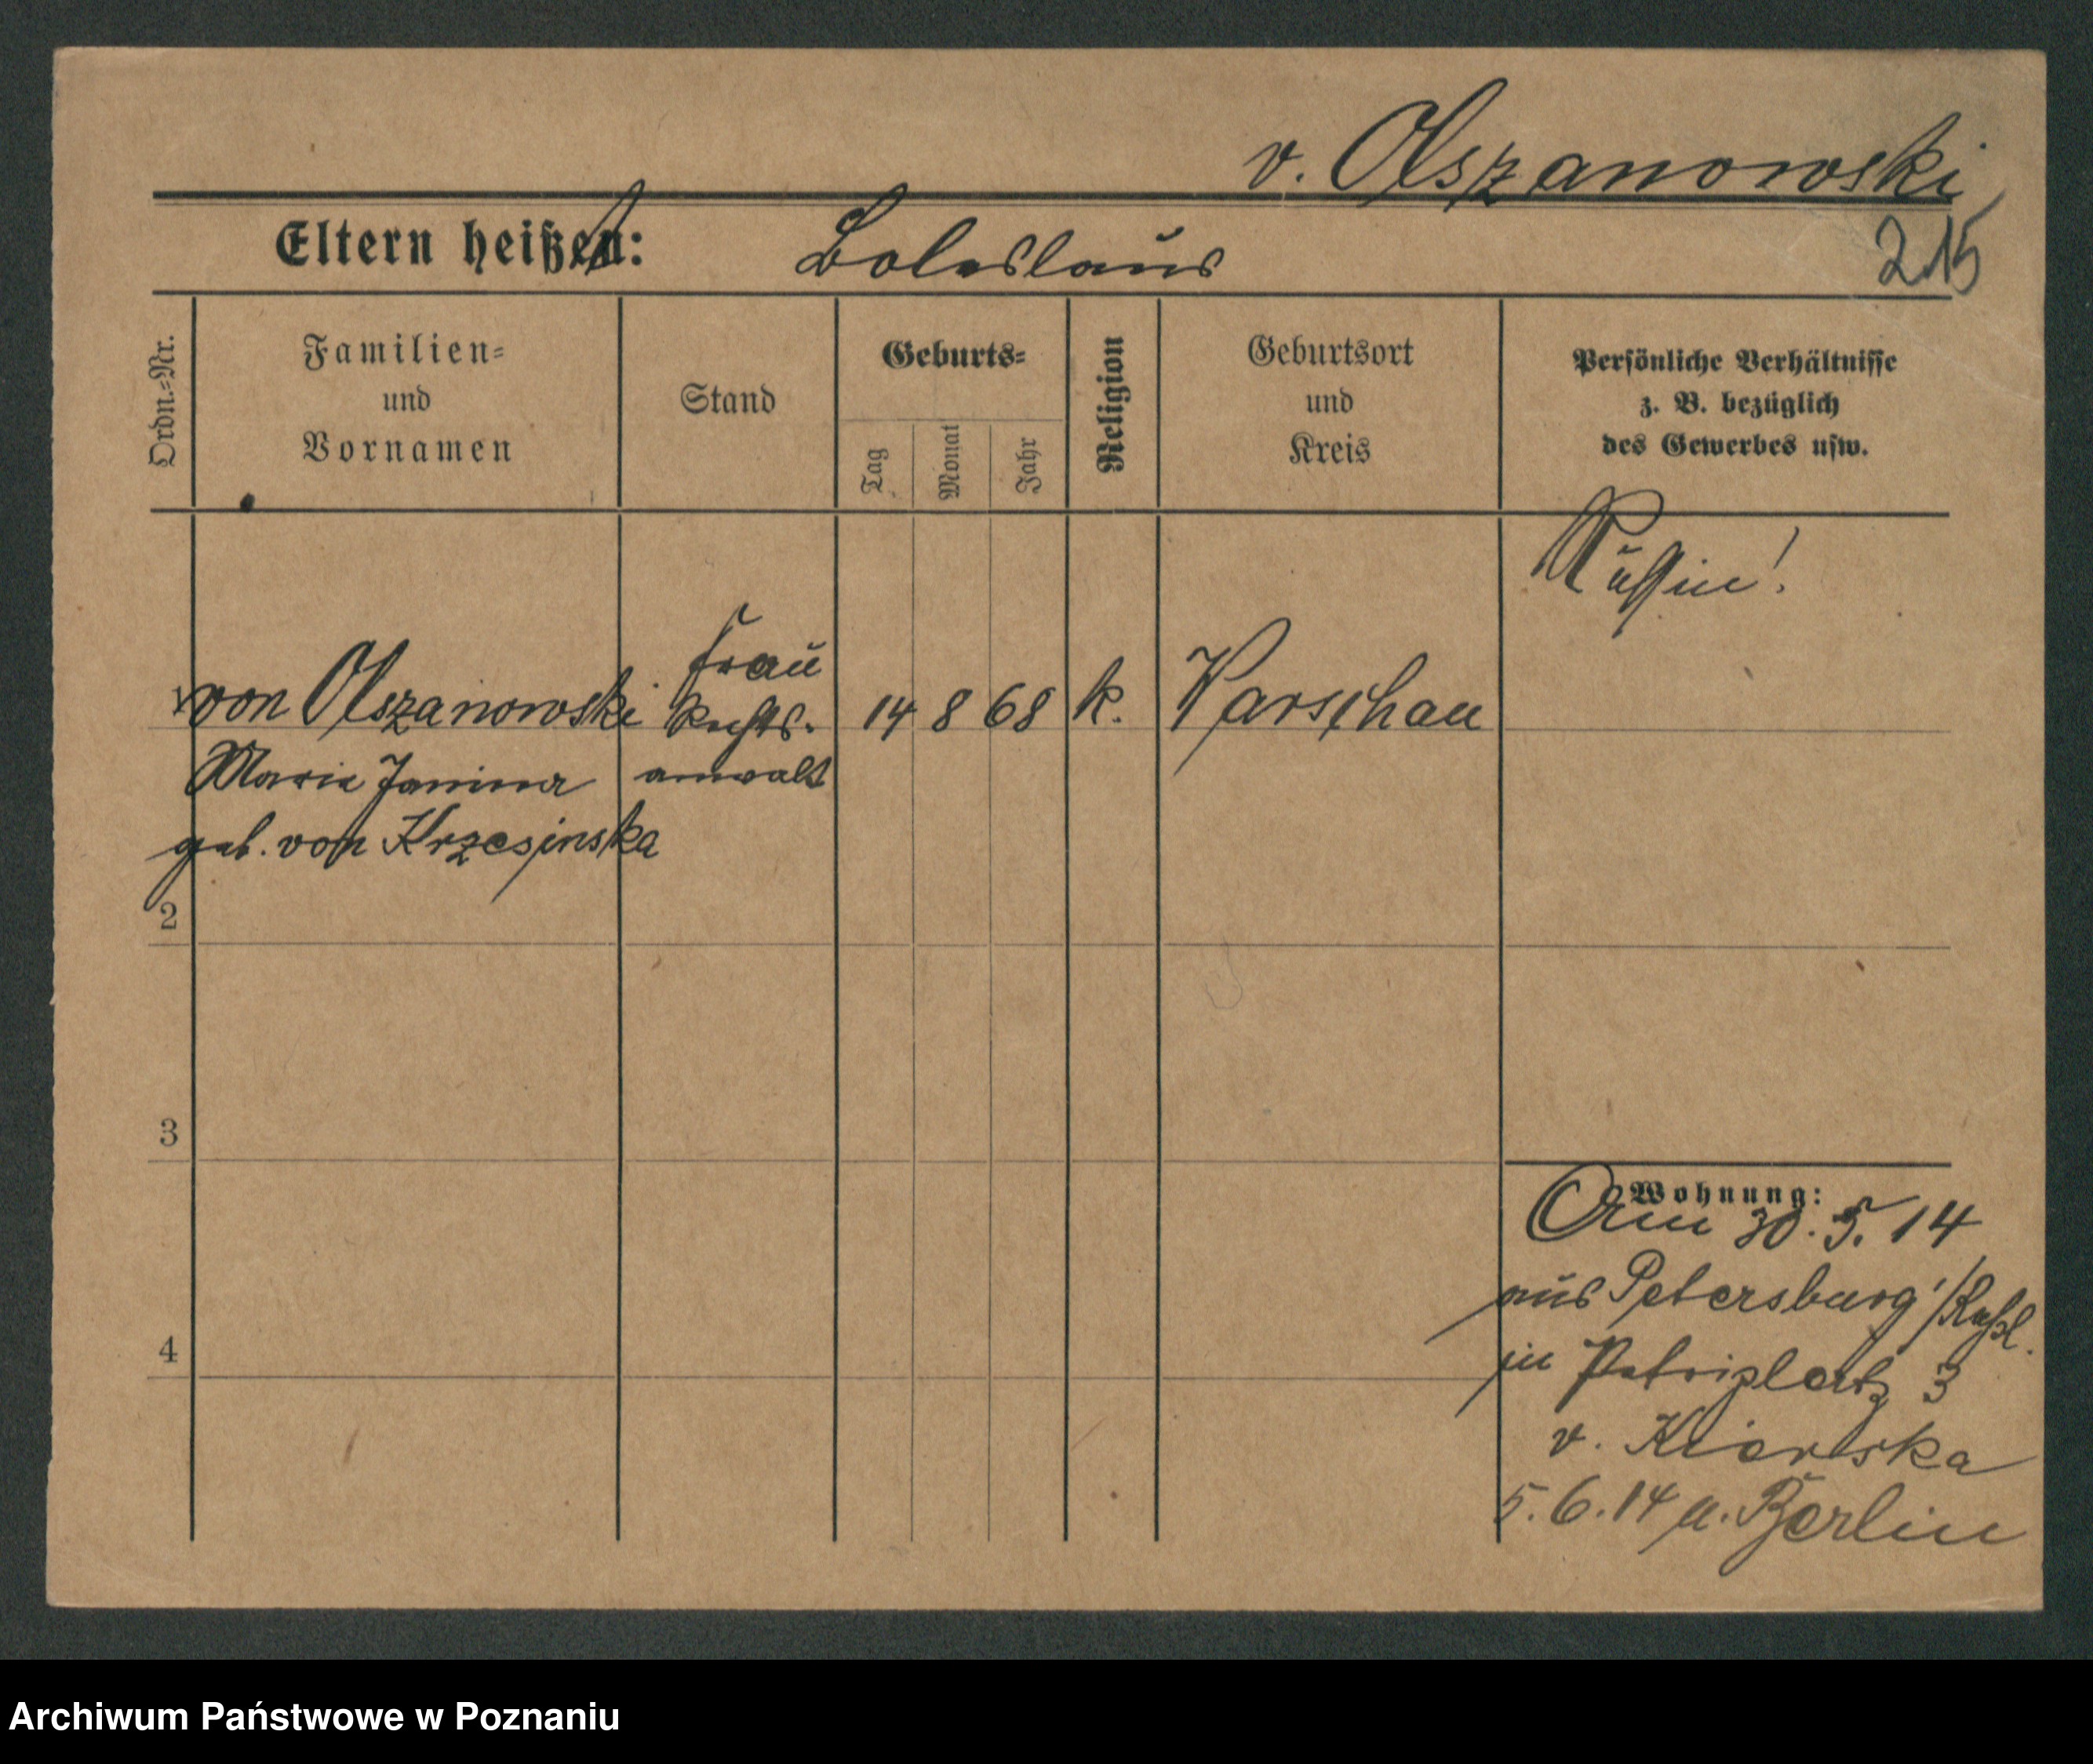 v. Olszanowski
Eltern heißen: Boleslaus
215
Ordn.-Nr.
Familien-
und
Vornamen
Stand
Geburts-
Tag
Monat
Jahr
Religion
Geburtsort
und
Kreis
Persönliche Verhältnisse
z. B. bezüglich
des Gewerbes usw.
Russin!
Frau
1 von Olszanowski Rechts- 14 8 68 k. Warschau
Maria Janina anwalt
geb. von Krzesinska
2
3
4
Wohnung:
Am 30. 5. 14
aus Petersburg /Rußl.
in Petriplatz 3
v. Kierska
5. 6. 14 n. Berlin
Archiwum Państwowe w Poznaniu